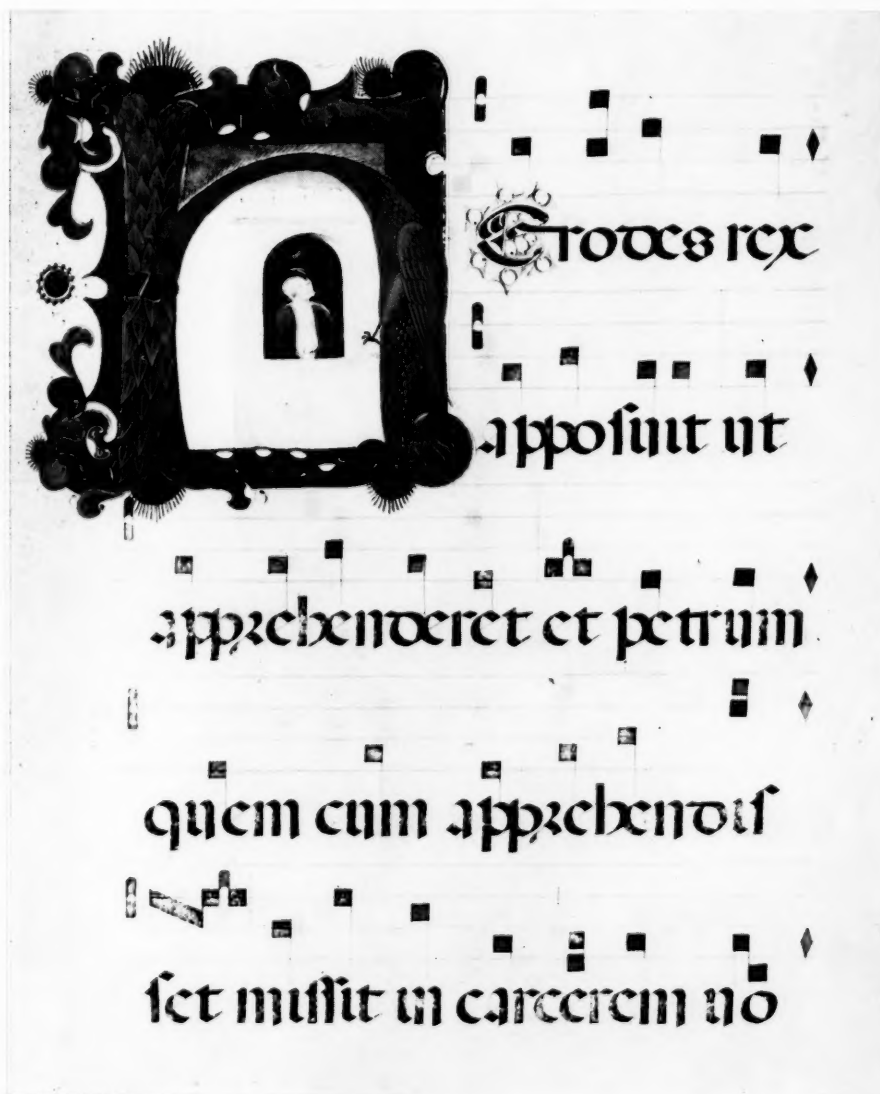 Erodes rex
apposuit ut
apprehenderet et petrum
quem cum apprehendis
set missit in carcerem no